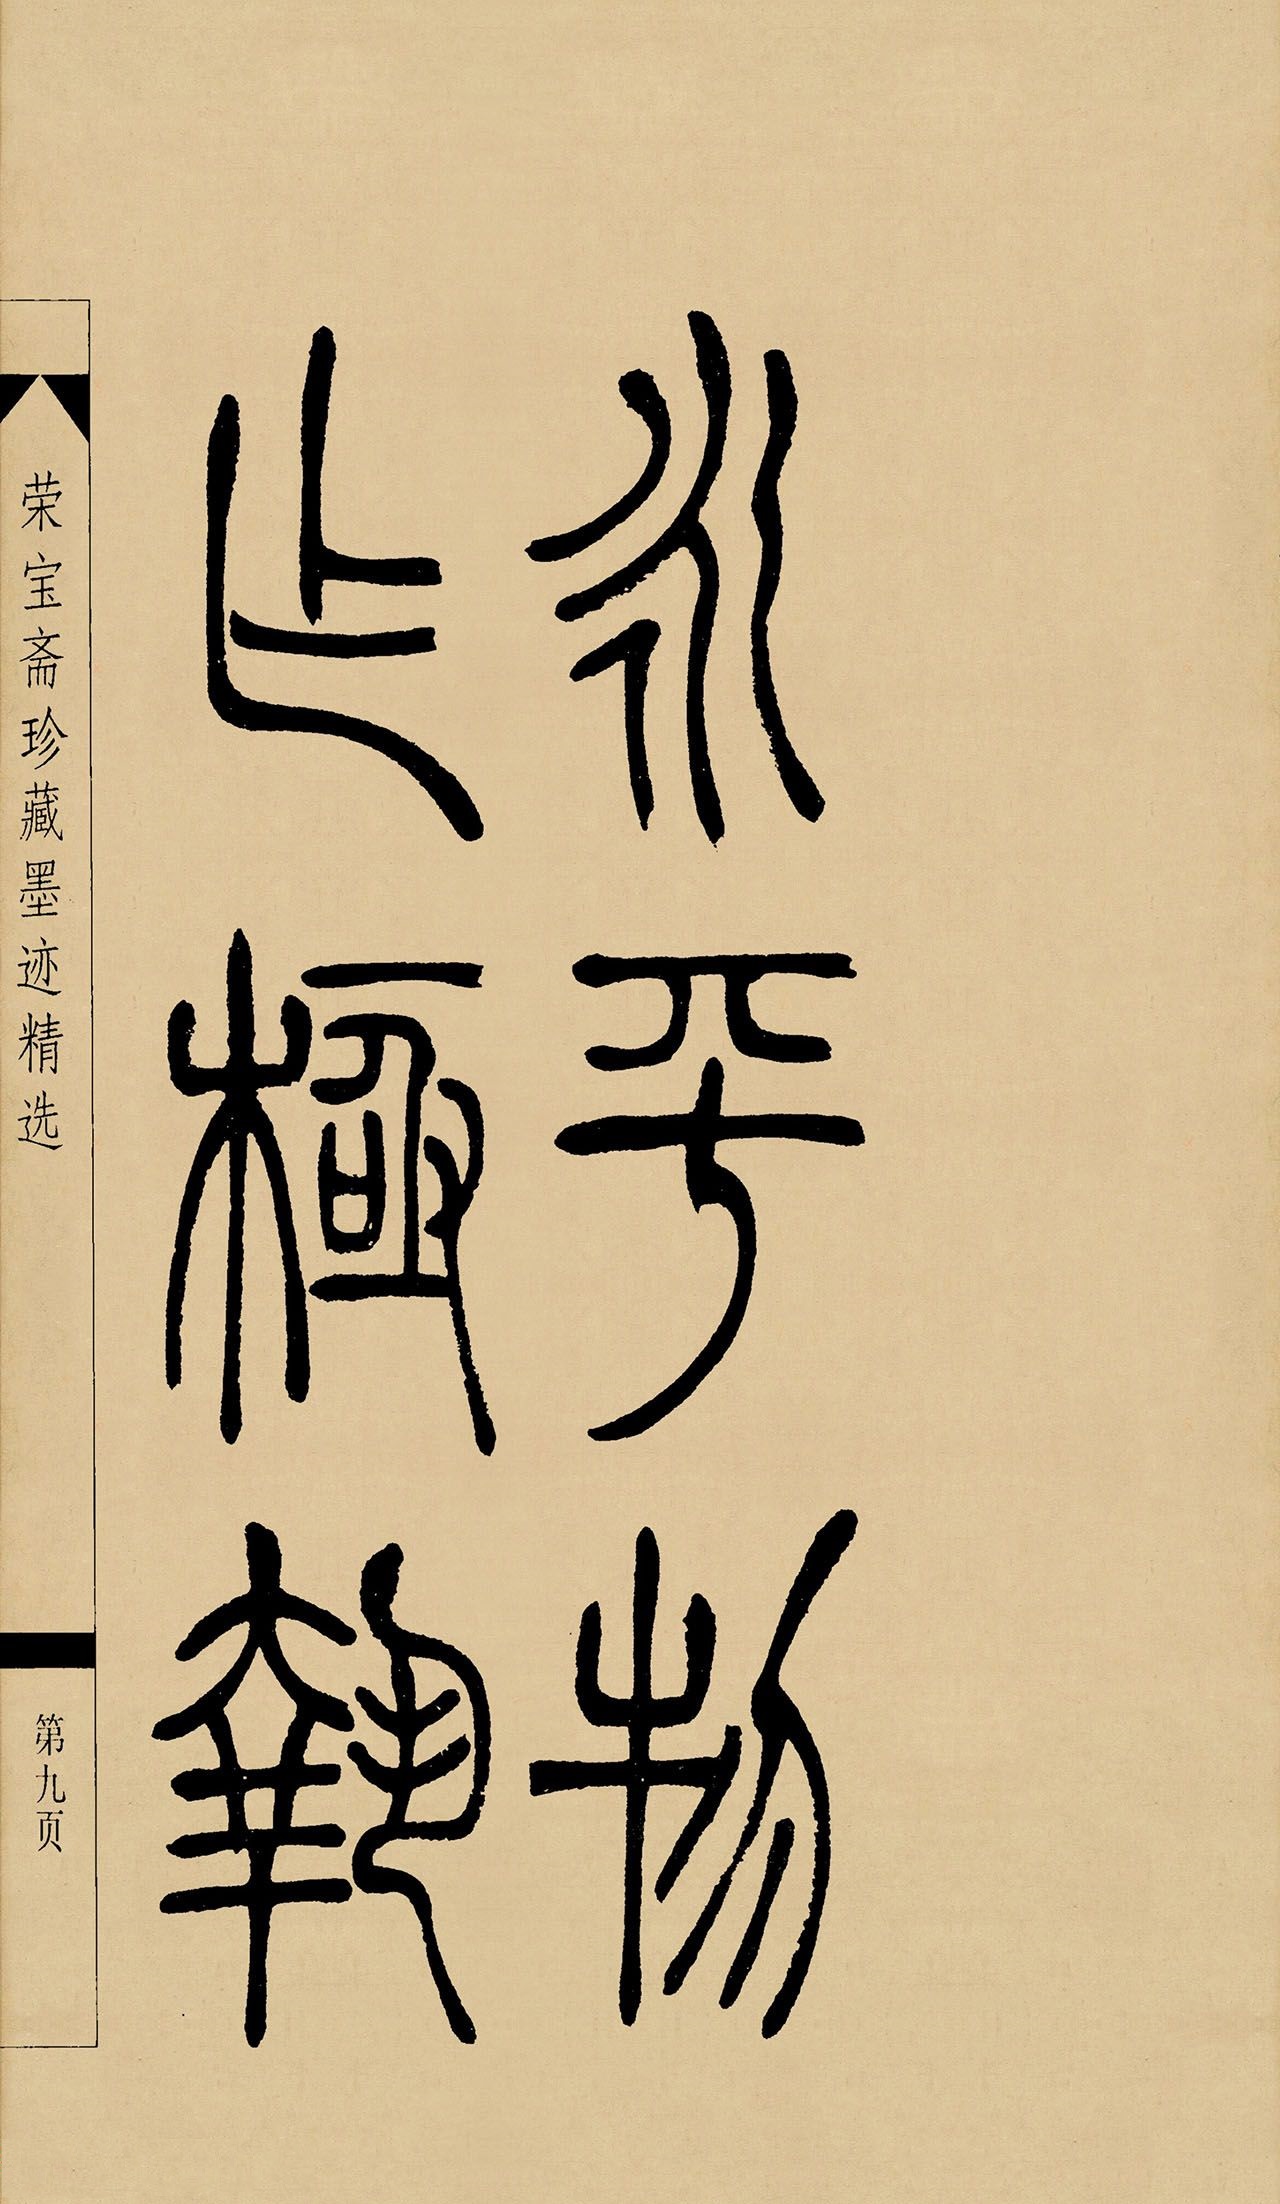 永平物
止極執
荣宝斋珍藏墨迹精选
第九页